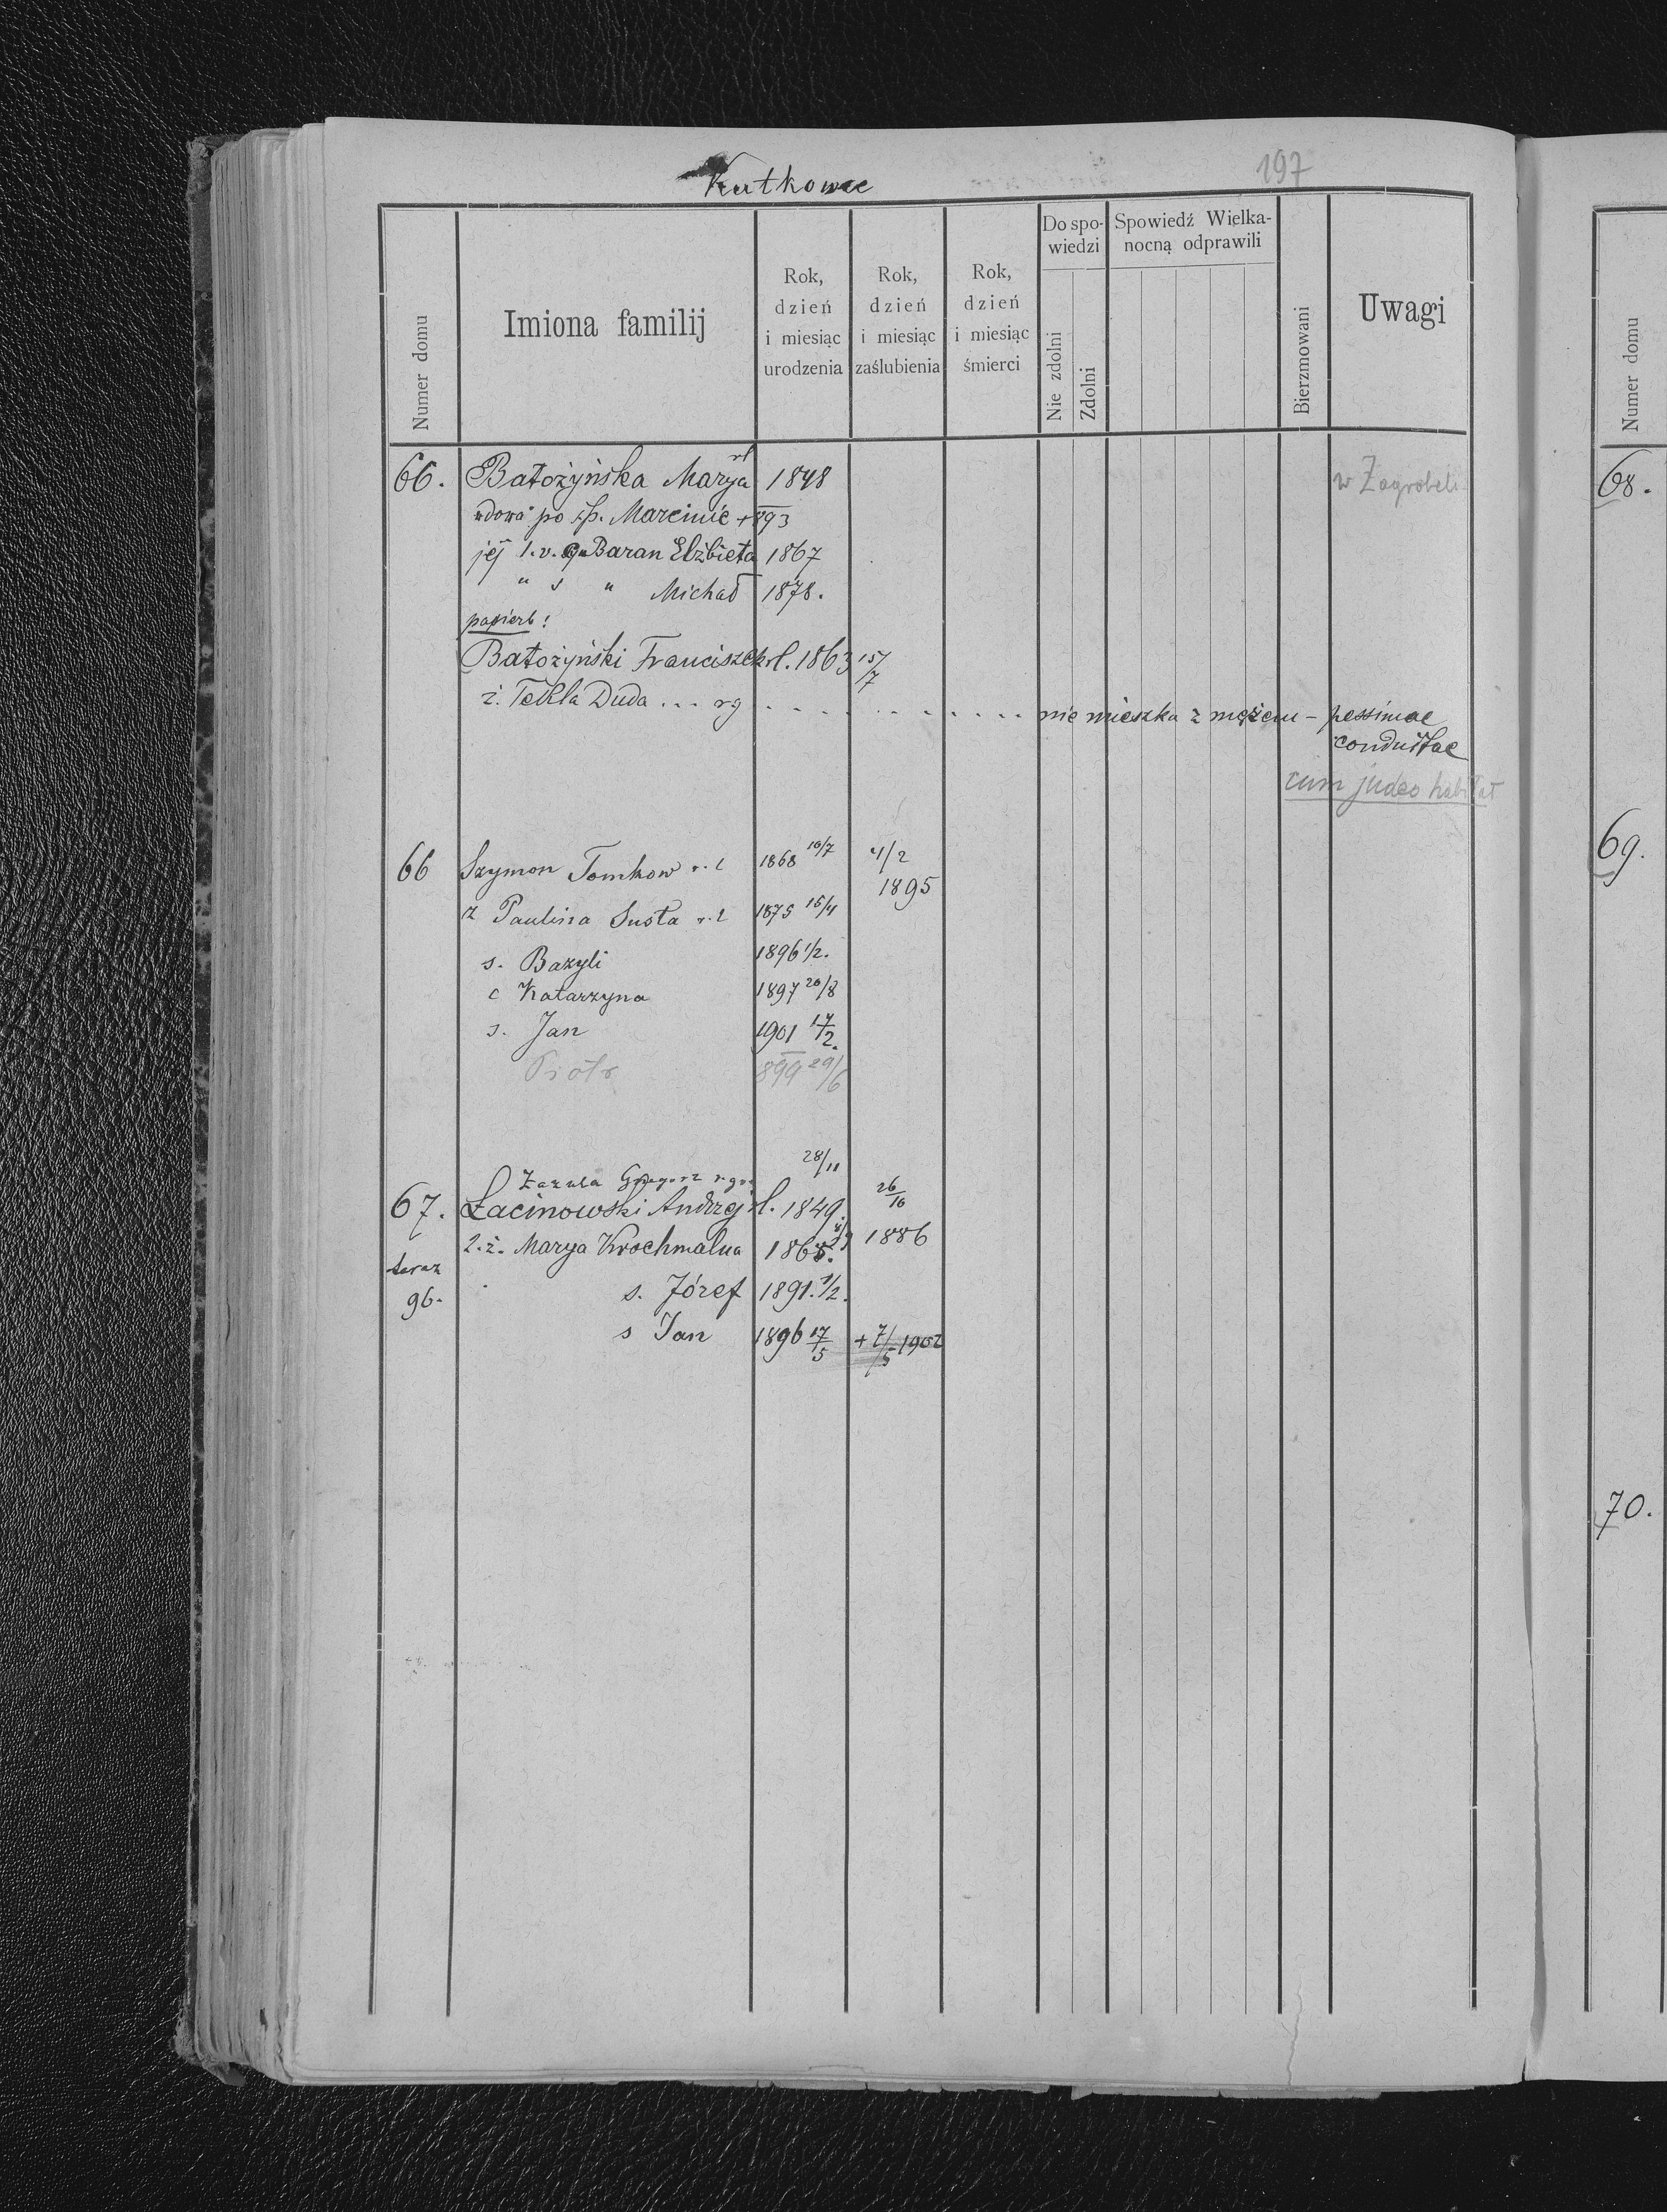 Kutkowce
197
Numer domu
Imiona familij
Rok, dzień i miesiąc urodzenia
Rok, dzień i miesiąc zaślubienia
Rok, dzień i miesiąc śmierci
Do spowiedzi
Nie zdolni
Zdolni
Spowiedź Wielkanocną odprawili
Bierzmowani
Uwagi
66. Batożyńska Marya rl 1848 w Zagrobeli
wdowa po śp. Marcinie + 893
jej 1.v. Baran Elżbieta 1867
" s " Michał 1878.
pasierb:
Batożyński Franciszek rl. 1863 15/7
ż. Tekla Duda ... rg . . . . . . . . . . . nie mieszka z mężem – pessimae
conduitae
cum judeo habitat
66 Szymon Tomkow r. l 1868 10/7 4/2
1895
ż Paulina Susła r. l 1875 15/4
s. Bazyli 1896 1/2.
c Katarzyna 1897 20/8
s. Jan 1901 17/2.
Piotr 899 29/6
Zazula Grzegorz 28/11
67. Łacinowski Andrzej rl. 1849. 26/10
2. ż. Marya Krochmalna 1865. 1886
teraz
96.
s. Józef 1891. 1/2.
s Jan 1896 17/5 + 7/5 1902
Numer domu
68.
69.
70.